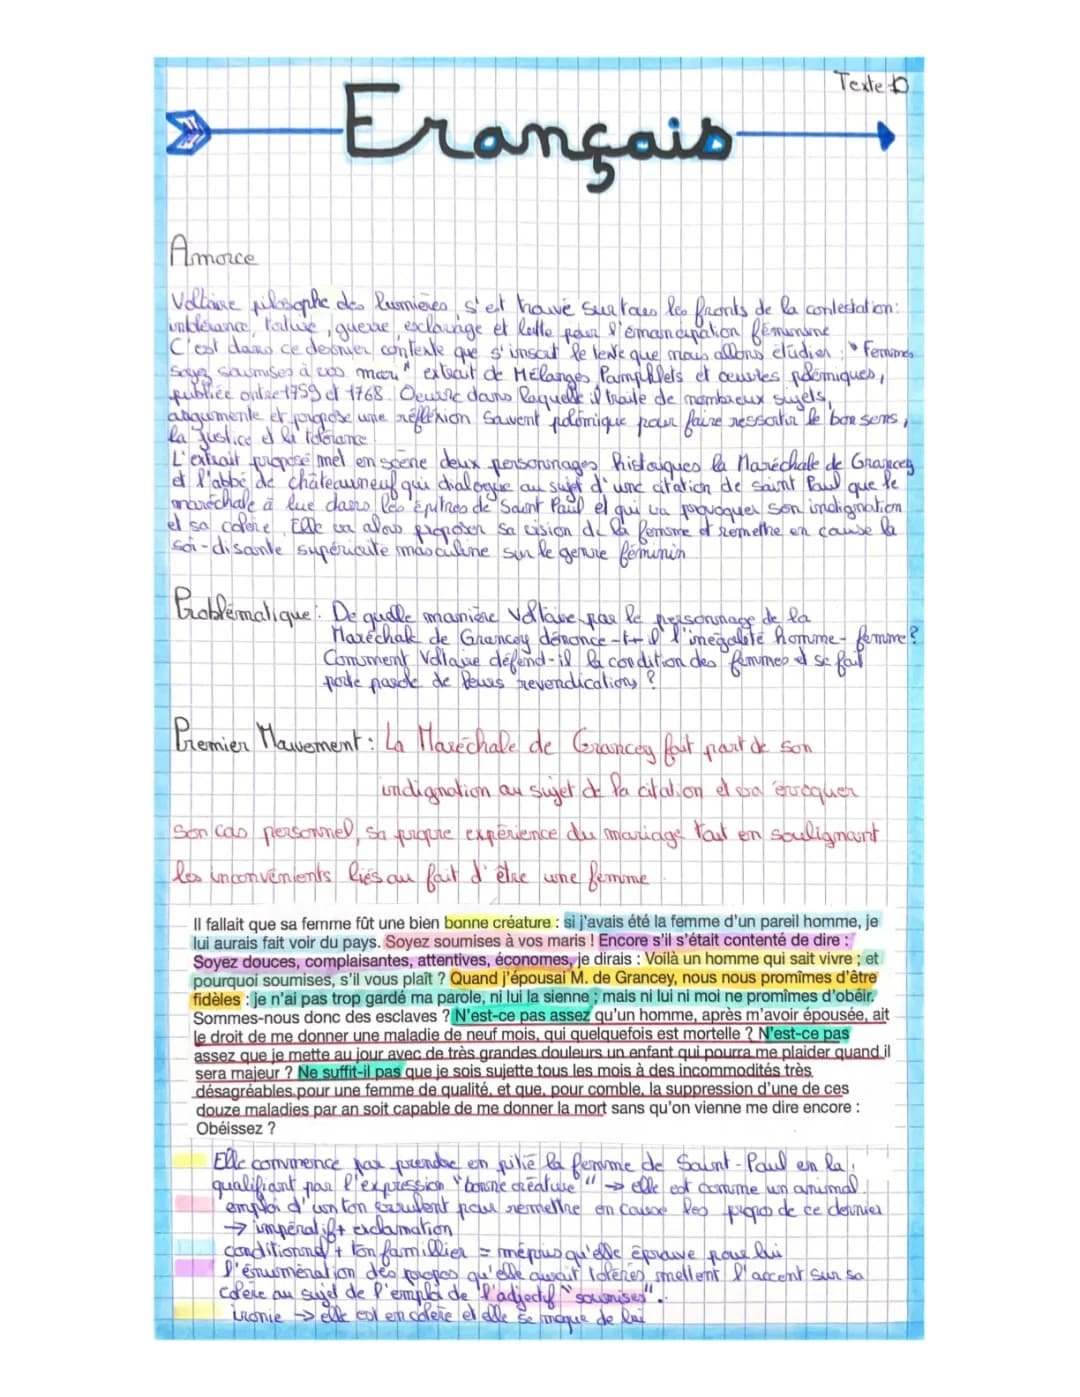 Texte 10
Français
Amorce
Voltaire pilosophe des lumières, s'est trouvé sur tous les fronts de la contestation:
intolérance, torture, guerre, esclavage et lutte pour l'émancipation féminine
C'est dans ce dernier contexte que s'inscrit le texte que nous allons étudier : "Femmes
Soyez soumises à vos mari" extrait de Mélanges, Pamphlets et œuvres polémiques,
publiée entre 1759 et 1768. Oeuvre dans laquelle il traite de nombreux sujets,
argumente et propose une réflexion souvent polémique pour faire ressortir le bon sens,
la justice et la tolérance
L'extrait proposé met en scène deux personnages historiques la Maréchale de Grancey
et l'abbé de châteauneuf qui dialogue au sujet d'une citation de saint Paul que le
maréchale à lue dans les Epitres de Saint Paul et qui va provoquer son indignation
et sa colère. Elle va alors proposer sa vision de la femme et remethe en cause la
soi-disante supériorité masculine sur le genre féminin
Problématique : De quelle manière Voltaire par le personnage de la
Maréchale de Grancey dénonce-t-il l'inégalité homme-femme?
Comment Voltaire défend-il la condition des femmes et se fait
porte parole de leurs revendications ?
Premier Mouvement : La Maréchale de Grancey fait part de son
indignation au sujet de la citation et va évoquer
son cas personnel, sa propre expérience du mariage tout en soulignant
les inconvénients liés au fait d'être une femme
Il fallait que sa femme fût une bien bonne créature : si j'avais été la femme d'un pareil homme, je
lui aurais fait voir du pays. Soyez soumises à vos maris ! Encore s'il s'était contenté de dire :
Soyez douces, complaisantes, attentives, économes, je dirais : Voilà un homme qui sait vivre ; et
pourquoi soumises, s'il vous plaît ? Quand j'épousai M. de Grancey, nous nous promîmes d'être
fidèles : je n'ai pas trop gardé ma parole, ni lui la sienne ; mais ni lui ni moi ne promîmes d'obéir.
Sommes-nous donc des esclaves ? N'est-ce pas assez qu'un homme, après m'avoir épousée, ait
le droit de me donner une maladie de neuf mois, qui quelquefois est mortelle ? N'est-ce pas
assez que je mette au jour avec de très grandes douleurs un enfant qui pourra me plaider quand il
sera majeur ? Ne suffit-il pas que je sois sujette tous les mois à des incommodités très
désagréables pour une femme de qualité, et que, pour comble, la suppression d'une de ces
douze maladies par an soit capable de me donner la mort sans qu'on vienne me dire encore :
Obéissez ?
Elle commence par prendre en pitié la femme de Saint-Paul en la
qualifiant par l'expression "bonne créature" → elle est comme un animal.
emploi d'un ton virulent pour remettre en cause les propos de ce dernier
→ impératif + exclamation
conditionnel + ton famillier = mépris qu'elle éprouve pour lui
l'énumération des propos qu'elle aurait tolérés mettent l'accent sur sa
colère au sujet de l'emploi de l'adjectif "soumises".
ironie → elle est en colère et elle se moque de lui